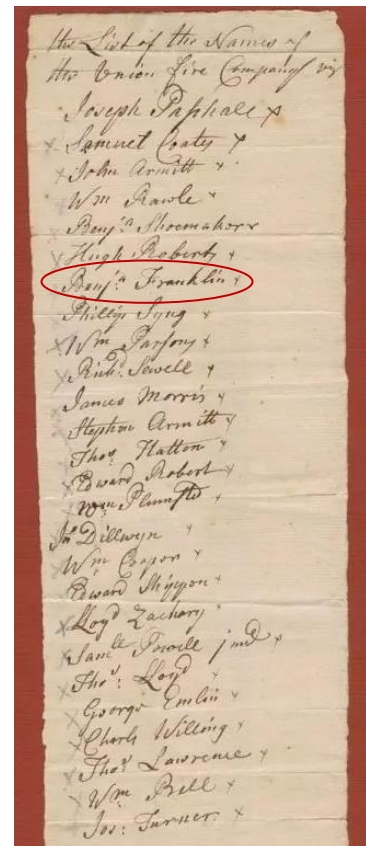 the List of the Names of
the Union fire Company viz
Joseph Pashall x
x Samuel Coats x
x John Armitt x
x Wm Rawle x
x Benj.a Shoemaker x
x Hugh Roberts x
x Benj.a Franklin x
x Phillip Syng x
x Wm Parsons x
x Rich.d Sewell x
x James Morris x
x Stephen Armitt x
x Tho.s Hatton x
x Edward Robert x
x Wm Plumsted x
Jn.o Dillwyn x
x Wm Cooper x
x Edward Shippen x
x Lloyd Zachary x
x Sam.ll Powell jun.r x
x Tho.s: Lloyd x
x George Emlin x
x Charls Willing x
x Tho.s Lawrence x
x Wm Bell x
x Jos: Turner x